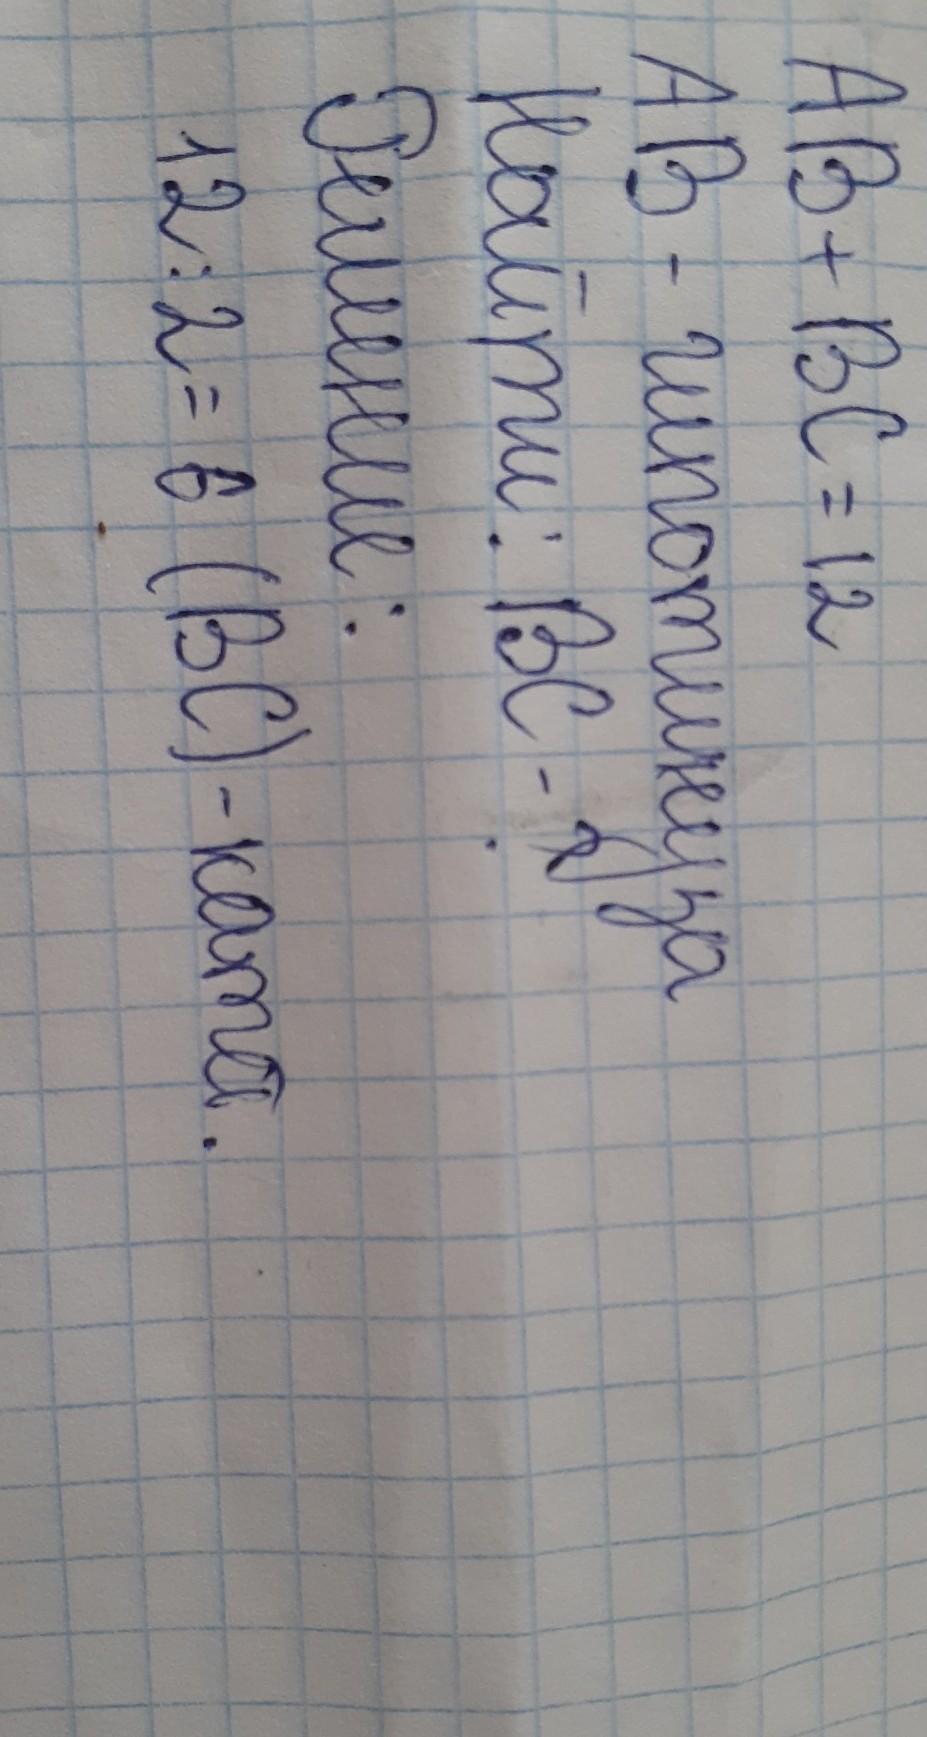 AB + BC = 12
AB - гипотинуза
Найти: BC - ?
Решение:
12:2=6 (BC) - катет.